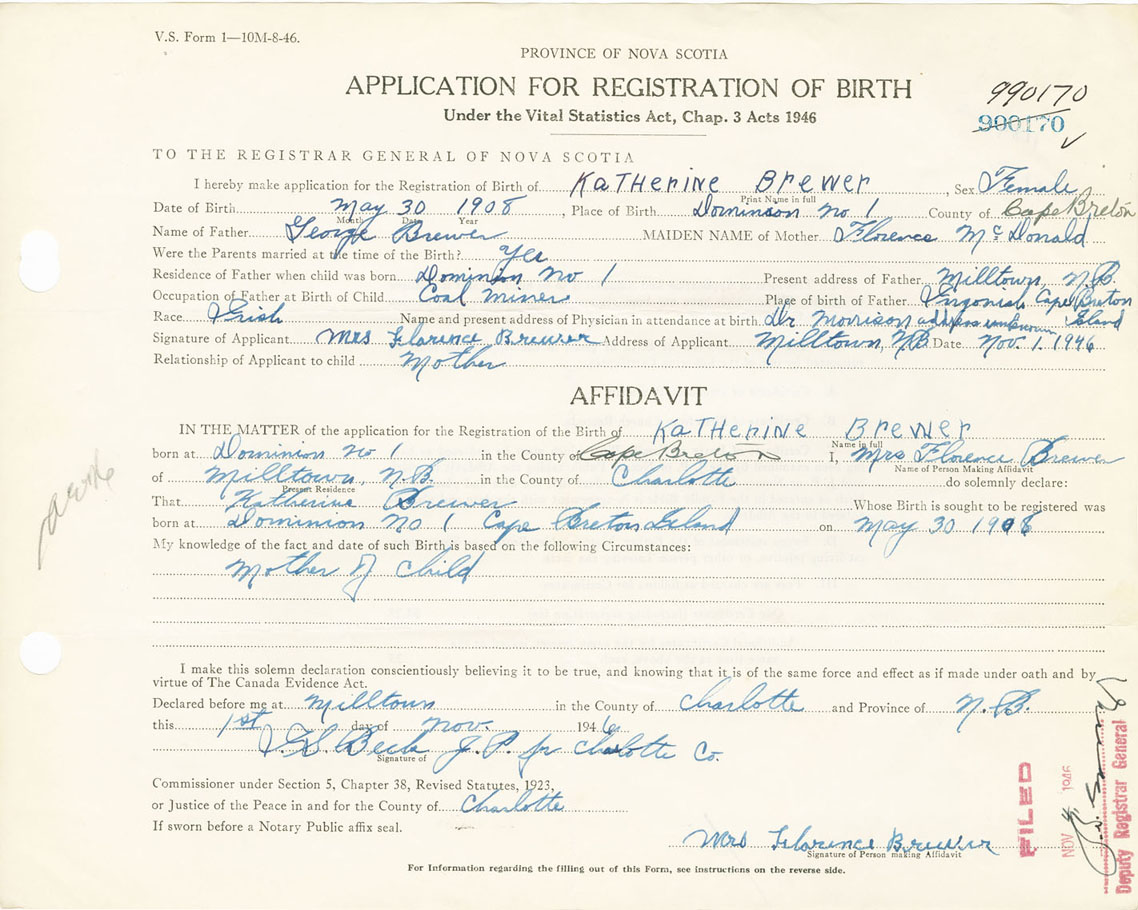 V.S. Form 1—10M-8-46.
PROVINCE OF NOVA SCOTIA
APPLICATION FOR REGISTRATION OF BIRTH
990170
Under the Vital Statistics Act, Chap. 3 Acts 1946
900170
TO THE REGISTRAR GENERAL OF NOVA SCOTIA
I hereby make application for the Registration of Birth of KATHerINe Brewer, Sex Female
Print Name in full
Date of Birth May 30 1908, Place of Birth Dominion No 1 County of Cape Breton
Month Date Year
Name of Father George Brewer MAIDEN NAME of Mother Florence McDonald
Were the Parents married at the time of the Birth? Yes
Residence of Father when child was born Dominion No 1 Present address of Father Milltown, N.B.
Occupation of Father at Birth of Child Coal Miner Place of birth of Father Ingonish Cape Breton Island
Race Irish Name and present address of Physician in attendance at birth Dr Morrison address unknown
Signature of Applicant Mrs Florence Brewer Address of Applicant Milltown, N.B. Date Nov. 1. 1946
Relationship of Applicant to child Mother
AFFIDAVIT
IN THE MATTER of the application for the Registration of the Birth of KATHerINe Brewer
Name in full
born at Dominion No 1 in the County of Cape Breton I, Mrs Florence Brewer
Name of Person Making Affidavit
of Milltown, N.B. in the County of Charlotte do solemnly declare:
Present Residence
That Katherine Brewer Whose Birth is sought to be registered was
born at Dominion No 1 Cape Breton Island on May 30 1908
My knowledge of the fact and date of such Birth is based on the following Circumstances:
Mother of Child
I make this solemn declaration conscientiously believing it to be true, and knowing that it is of the same force and effect as if made under oath and by
virtue of The Canada Evidence Act.
Declared before me at Milltown in the County of Charlotte and Province of N.B.
this 1st day of Nov. 1946
Beck J.P. for Charlotte Co.
Signature of
Commissioner under Section 5, Chapter 38, Revised Statutes, 1923,
or Justice of the Peace in and for the County of Charlotte
If sworn before a Notary Public affix seal.
Mrs Florence Brewer
Signature of Person making Affidavit
For Information regarding the filling out of this Form, see instructions on the reverse side.
FILED
NOV 4 1946
Deputy Registrar General